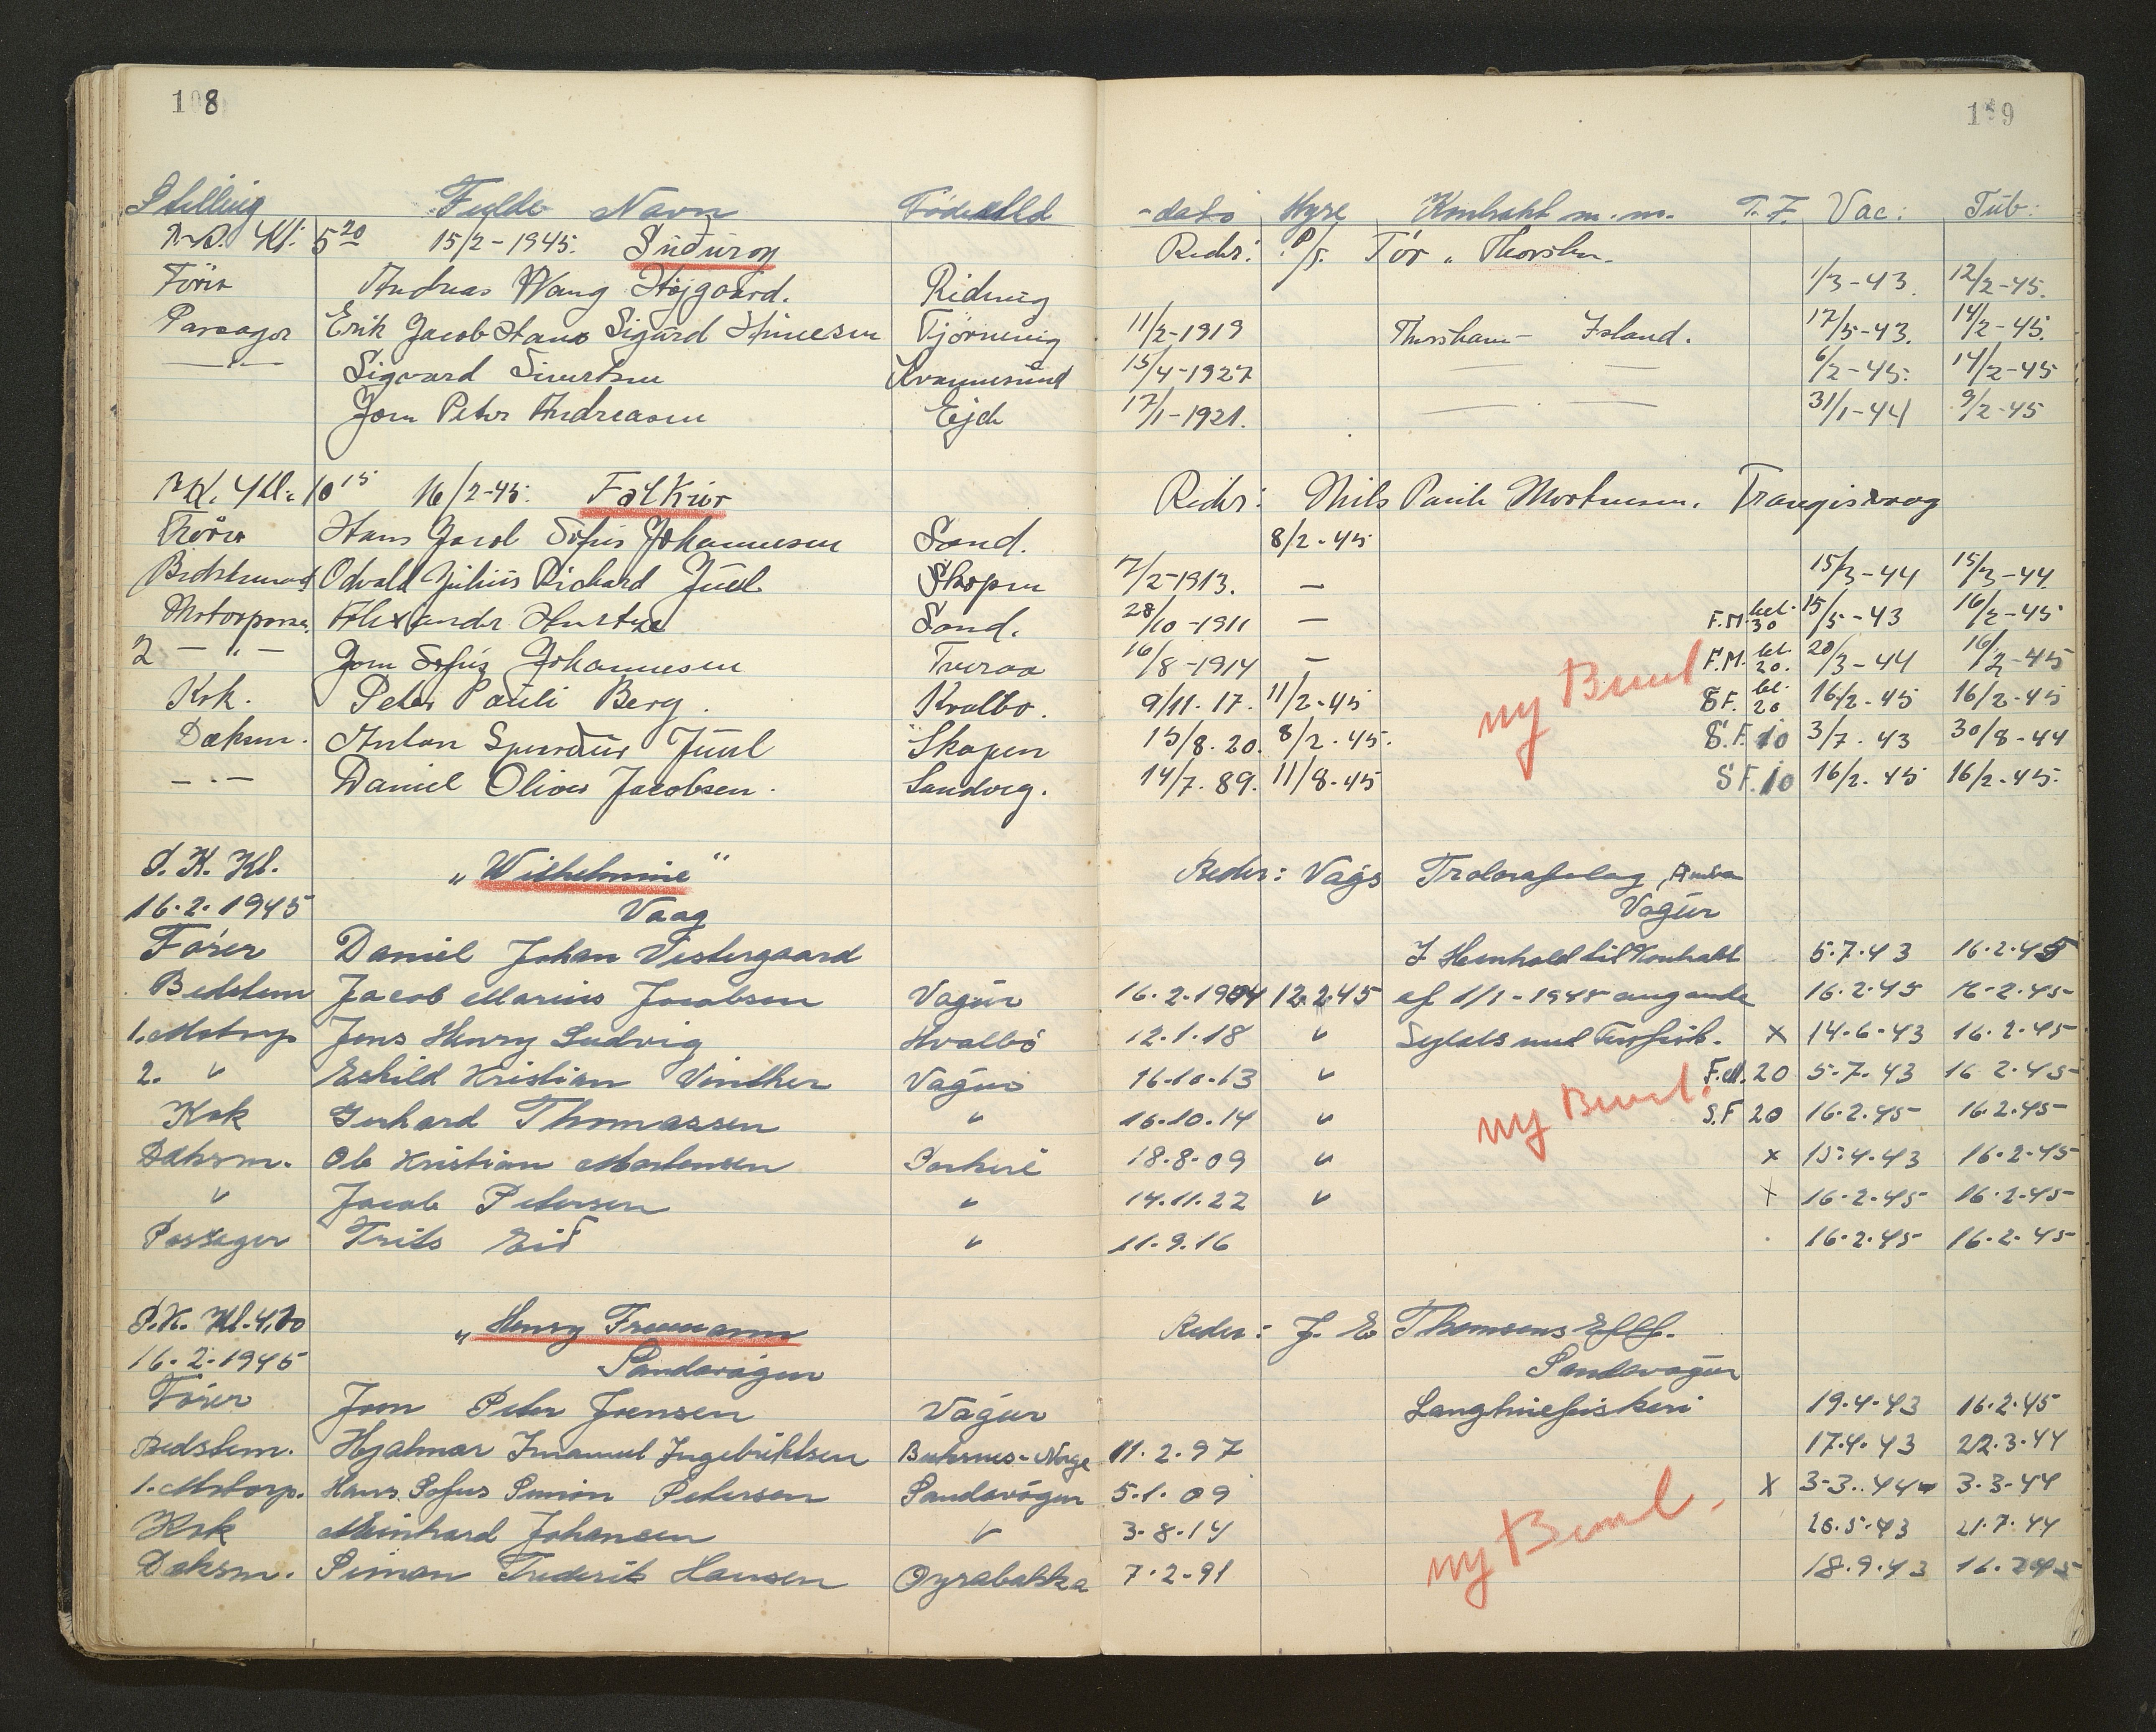 108 109
Stilling Fulde Navn Fødested -dato Hyre Kontrakt m.m. T.F. Vac: Tub:
Kl: 5 20 15/2-1945. Suðuroy Reder: P/f. Tór, Thorshn.
Fører Andreas Wang Højgaard. Ridevig 1/3-43. 12/2-45.
Passager Erik Jacob Hans Sigurd Simesen Tjörnevig 11/2-1919 Thorshavn - Island. 17/5-43. 14/2-45.
— " — Sigvard Sivertsen Kvannesund 15/4-1927 — — 6/2-45. 14/2-45
Jom Peter Andreasen Ejde 17/1-1921. — — 31/1-44 9/2-45
Kl: 10 15 16/2-45. Falkur Reder: Niels Pauli Mortensen. Trangisvaag
Fører Hans Jacob Sofus Johannesen Sand. 8/2-45
Bedstemand Odvald Julius Richard Juul Skopun 7/2-1913. — 15/3-44 15/3-44
Motorpasser. Alexander Sand. 28/10-1911 — F.M. bet. 30 15/5-43 16/2-45
2 — " — Jom Sofus Johannesen Tveraa 16/8-1914 — F.M. bet. 20. 20/3-44 16/2-45
Kok. Peter Pauli Berg. Kvalbo. 9/11.17. 11/2-45 ny Beml S.F. bet. 20 16/2-45 16/2-45
Dæksm. Anton Sjurdur Juul Skopen 15/8.20. 8/2.45. S.F. 10 3/7.43 30/8-44
— " — Daniel Oliver Jacobsen. Sandvig. 14/7.89. 11/8-45 S.F. 10 16/2.45 16/2-45.
P.K. Kl. "Wilhelmine" Reder: Vágs
16.2.1945 Vaag Vágur
Fører Daniel Johan Vestergaard I Henhold til Kontrakt 5.7.43 16.2.45
Bedstem Jacob Marius Jacobsen Vágur 16.2.1904 12.2.45 af 1/1-1945 angaaende 16.2.45 16.2.45
1. Motorp Jens Henry Ludvig Hvalbö 12.1.18 " Sejlads med Fersfisk. X 14.6.43 16.2.45
2. " Eskild Kristian Vinther Vágur 16.10.13 " F.M. 20 5.7.43 16.2.45
Kok Gerhard Thomassen " 16.10.14 " ny Beml. S.F 20 16.2.45 16.2.45
Dæksm. Ole Kristian Mortensen Porkeri 18.8.09 " x 15.4.43 16.2.45
" Jacob Petersen " 14.11.22 " x 16.2.45 16.2.45
Passager Frits Eið " 11.9.16 16.2.45 16.2.45
P.K. Kl. "Henry Freemann Reder: J. E Thomsens Eftf.
16.2.1945 Sandavágur Sandavágur
Fører Jom Peter Joensen Vágur Langliniefiskeri 19.4.43 16.2.45
Bedstem. Hjalmar Imanuel Ingebriktsen Buksnes-Norge 11.2.97 17.4.43 22.3.44
1. Motorp. Hans Sofus Simon Petersen Sandavágur 5.1.09 X 3-3.44 3.3.44
Kok Meinhard Johansen " 3.8.14 ny Beml. 26.5.43 21.7.44
Dæksm. Simon Frederik Hansen Oyrabakka 7.2.91 18.9.43 16.2.45